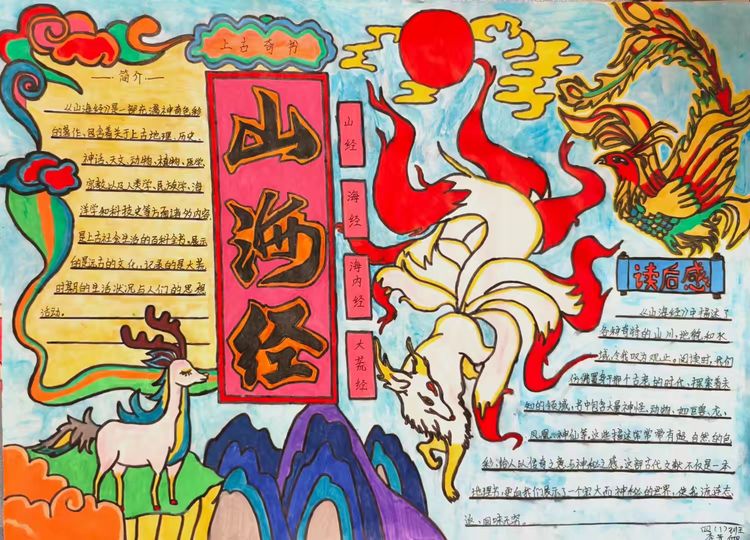 上古奇书
简介
《山海经》是一部充满神奇色彩
的著作,内容着关于上古地理、历史、
神话、天文、动物、植物、医学、
宗教以及人类学、民族学、海
洋学和科技史等方面诸多内容,
是上古社会生活的百科全书,展示
的是远古的文化,记录的是大荒
时期的生活状况与人们的思想
活动。
山海经
山经
海经
海内经
大荒经
读后感
《山海经》中描述了
各种奇特的山川、地貌和水
域,令我叹为观止。阅读时,我们
仿佛置身于那个古老的时代,探索着未
知的领域,书中包含大量神怪、动物,如巨兽、龙、
凤凰、神仙等,这些描述常常带有超自然的色
彩,给人以传奇之感与神秘之感,这部古代文献不仅是一本
地理书,更向我们展示了一个宏大而神秘的世界,使我流连忘
返、回味无穷。
四(1)班